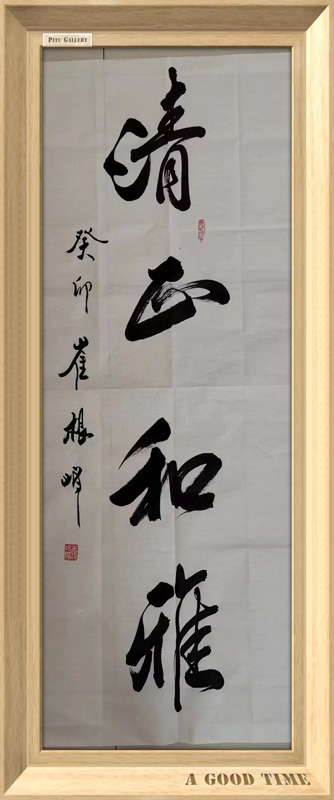 Pité Gallery
清正和雅
癸卯 崔根峰
A GOOD TIME